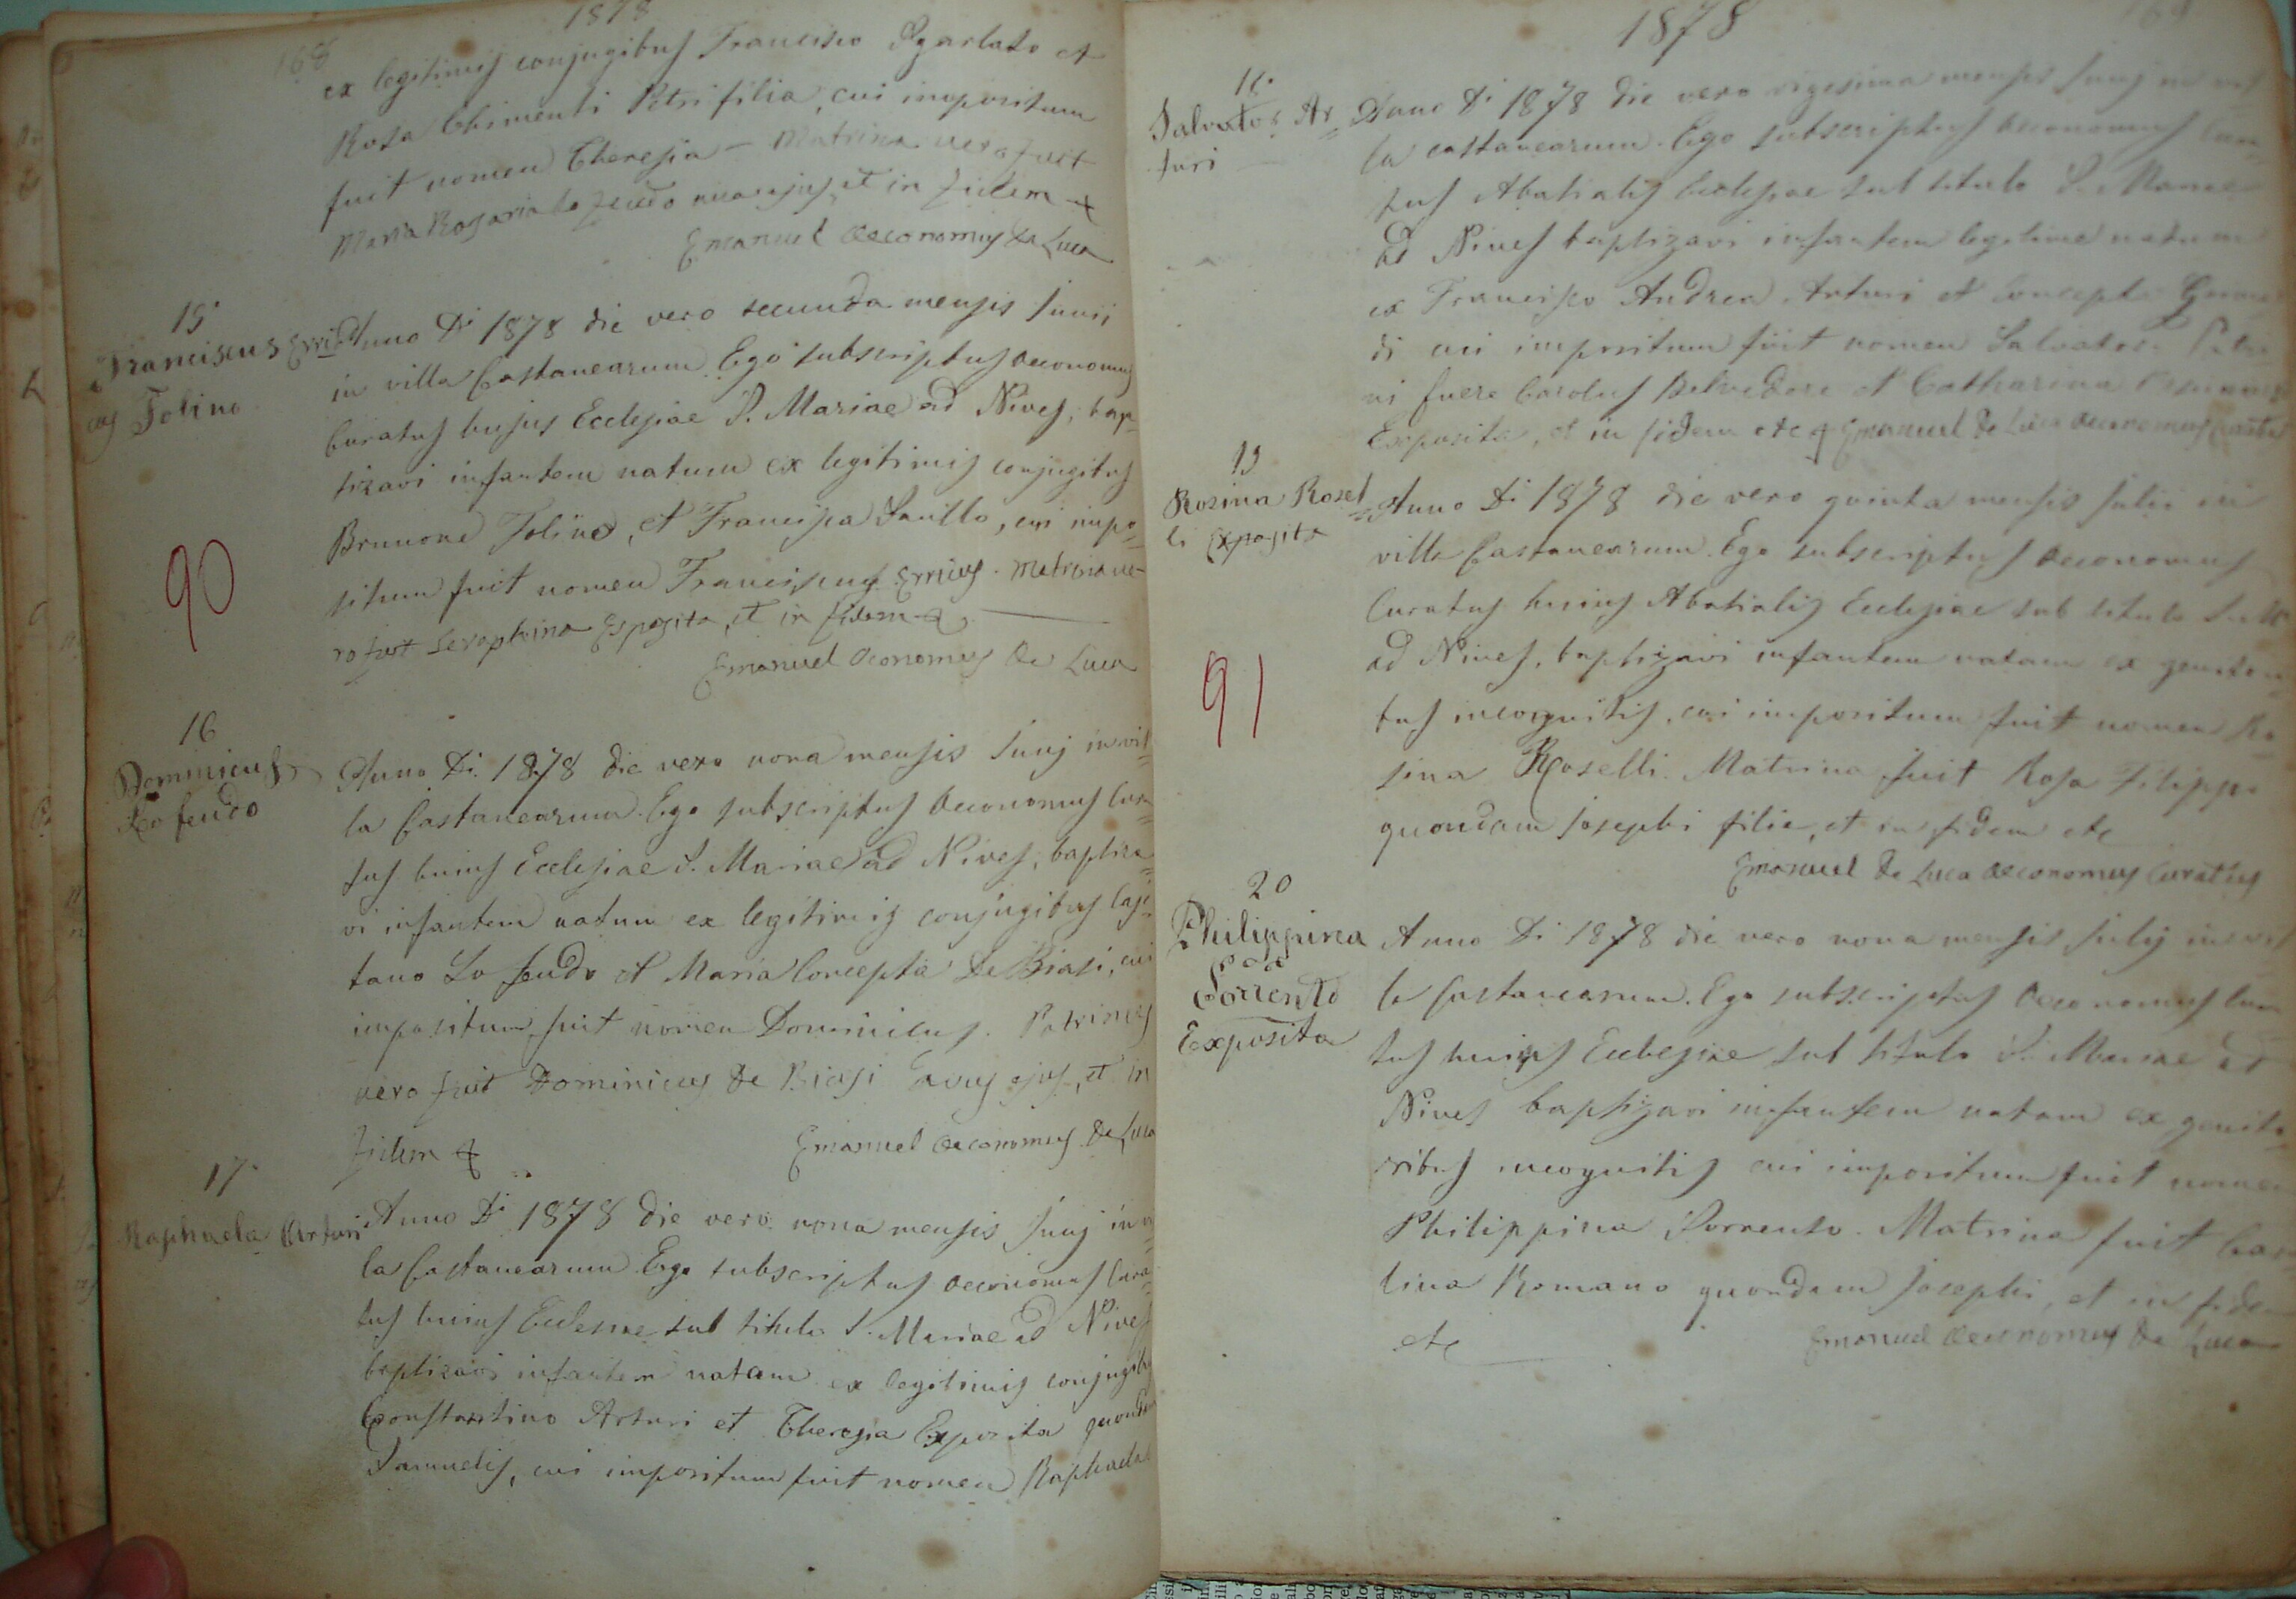 1878
168
ex legitimis conjugibus Francisco Sgarlato et
Rosa Chimenti Petri filia, cui impositum
fuit nomen Theresia - Matrina vero fuit
Maria Rosaria Lo feudo ejus, et in fidem
Emanuel Oeconomus De Luca
15.
Franciscus Erri=
cus Folino
Anno Di 1878 die vero secunda mensis Junii
in villa Castanearum. Ego subscriptus Oeconomus
Curatus hujus Ecclesiae S. Mariae ad Nives, bap=
tizavi infantem natum ex legitimis conjugibus
Brunone Folino, et Francisca Saullo, cui impo=
situm fuit nomen Franciscus Erricus. Matrina ve=
ro fuit Seraphina Esposita, et in fidem
Emanuel Oeconomus De Luca
90
16
Dominicus
Lo feudo
Anno Di. 1878 die vero nona mensis Junij in vil=
la Castanearum. Ego subscriptus Oeconomus Cura=
tus huius Ecclesiae S. Mariae ad Nives, baptiza=
vi infantem natum ex legitimis conjugibus Caje=
tano Lo feudo et Maria Concepta De Biasi, cui
impositum fuit nomen Dominicus. Patrinus
vero fuit Dominicus De Biasi avus ejus, et in
fidem
Emanuel Oeconomus De Luca
17.
Raphaela Arturi
Anno Di 1878 die vero nona mensis Junij in vi=
la Castanearum. Ego subscriptus Oeconomus Cura=
tus huius Ecclesiae sub titulo S. Mariae ad Nives
baptizavi infantem natam ex legitimis conjugibus
Constantino Arturi et Theresia Exposita quondam
Samuelis, cui impositum fuit nomen Raphaela
1878
18.
Salvator Ar=
turi
Anno Di 1878 die vero vigesima mensis Junij in vil
la castanearum. Ego subscriptus Oeconomus Cura=
tus Abatialis Ecclesiae sub titulo S. Mariae
ad Nives baptizavi infantem legitime natum
ex Francisco Andrea Arturi et Concepta
di cui impositum fuit nomen Salvator. Patri
ni fuere Carolus Belvedere et Catharina
Exposita, et in fidem etc Emanuel De Luca Oeconomus Curatus
19
Rosina Rosel=
li Exposita
Anno Di 1878 die vero quinta mensis Julii in
villa Castanearum. Ego subscriptus Oeconomus
Curatus huius Abatialis Ecclesiae sub titulo S. M.
ad Nives, baptizavi infantem natam ex genitori
bus incognitis, cui impositum fuit nomen Ro=
sina Roselli. Matrina fuit Rosa Filippo
quondam Josephi filia, et in fidem etc
Emanuel De Luca Oeconomus Curatus
91
20
Philippina
Sorrento
Exposita
Anno Di 1878 die vero nona mensis Julij in vil
la Castanearum. Ego subscriptus Oeconomus Cura
tus huius Ecclesiae sub titulo S. Mariae ad
Nives baptizavi infantem natam ex genito
ribus incognitis cui impositum fuit nomen
Philippina Sorrento. Matrina fuit Caro
lina Romano quondam Josephi, et in fidem
etc
Emanuel Oeconomus De Luca